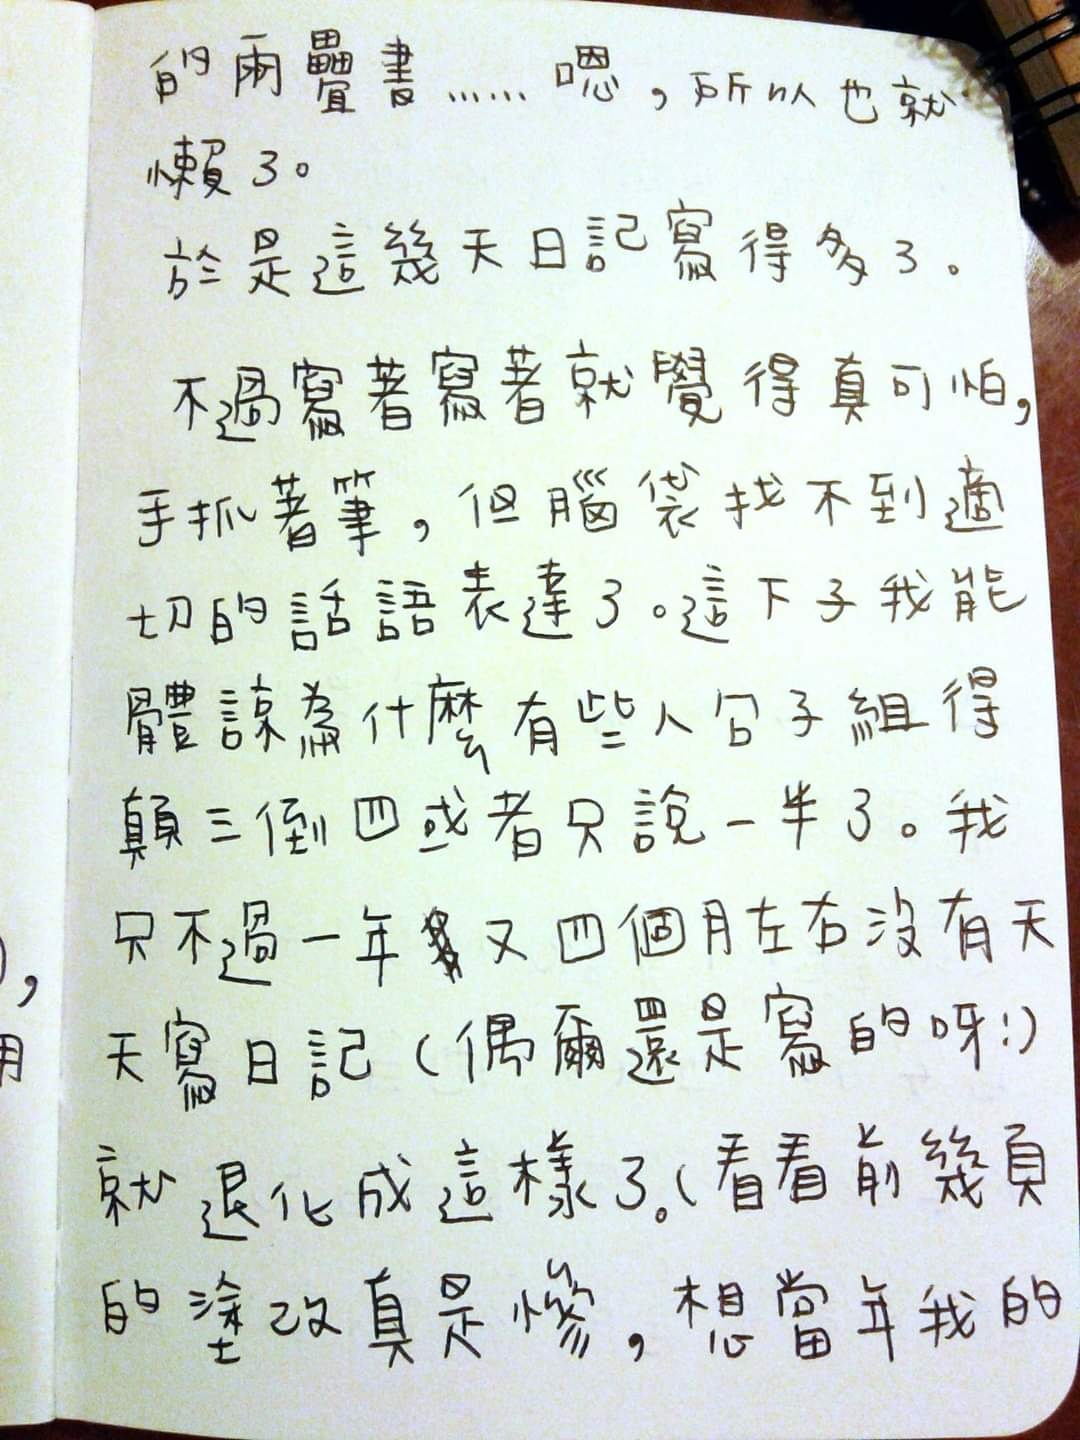 的兩疊書……嗯，所以也就
懶了。
於是這幾天日記寫得多了。
不過寫著寫著就覺得真可怕，
手抓著筆，但腦袋找不到適
切的話語表達了。這下子我能
體諒為什麼有些人句子組得
顛三倒四或者只說一半了。我
只不過一年又四個月左右沒有天
天寫日記（偶爾還是寫的呀！）
就退化成這樣了。（看看前幾頁
的塗改真是慘，想當年我的
，
用